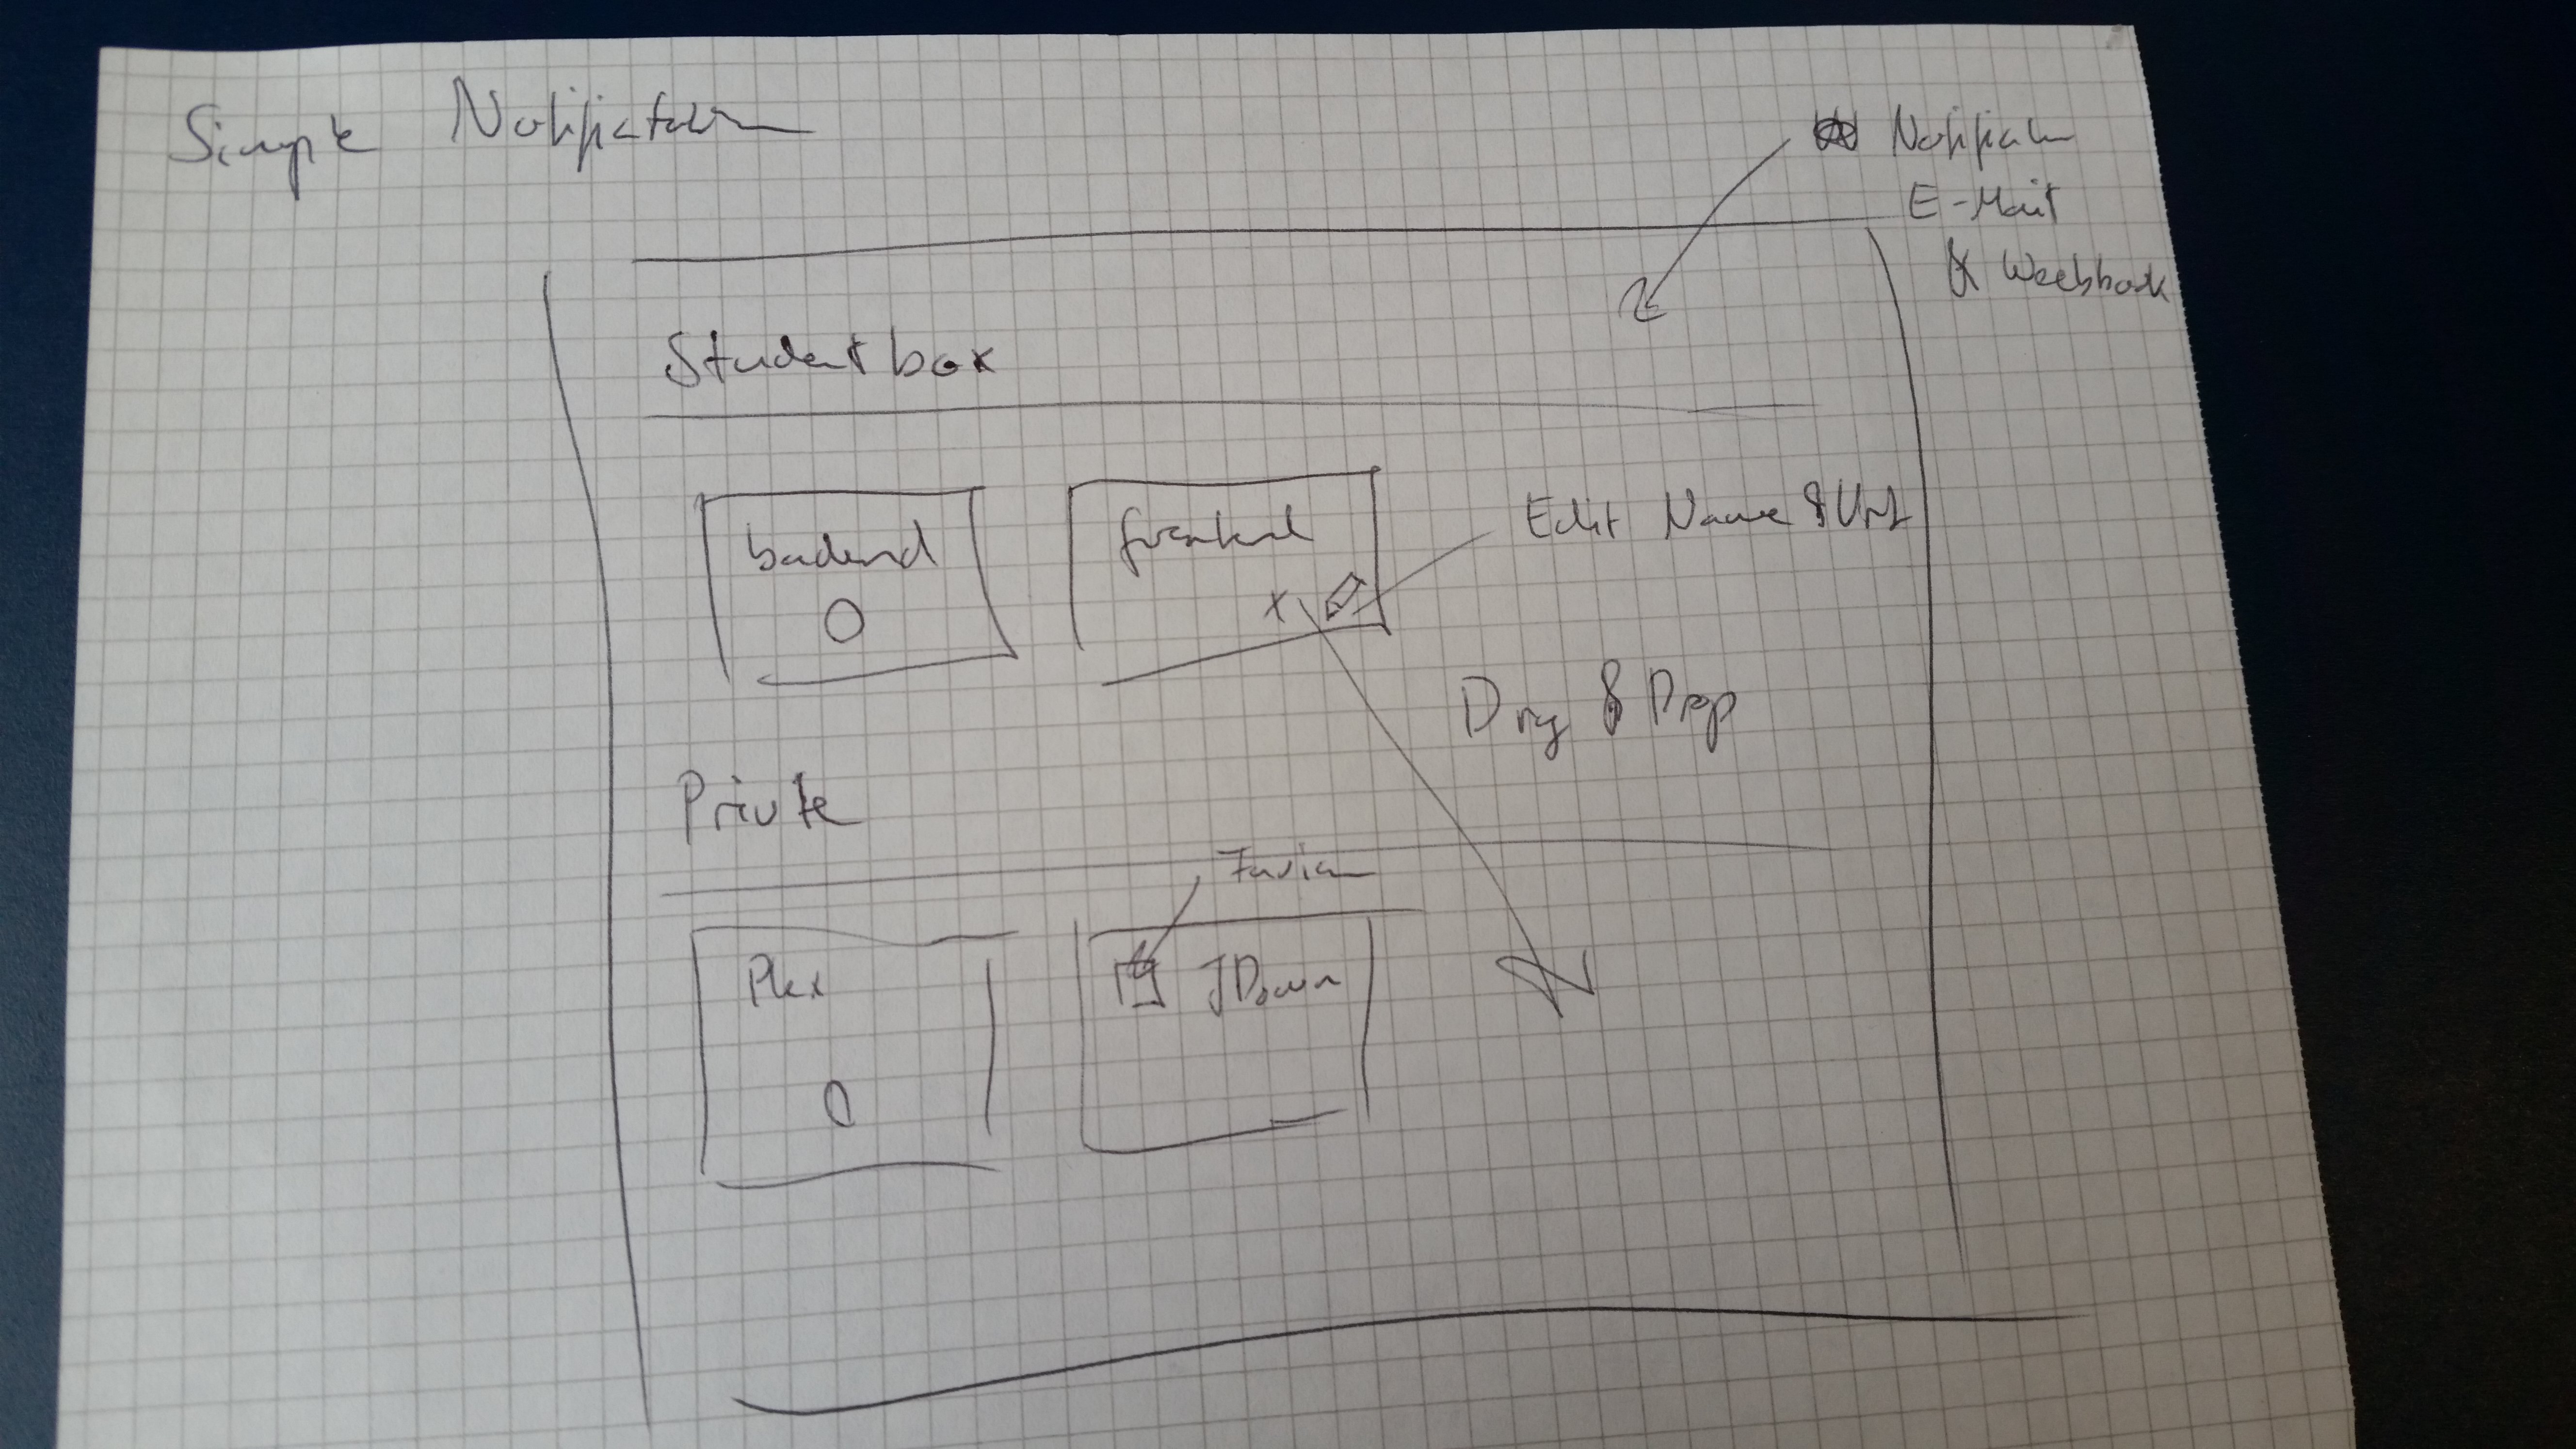 Simple Notification
Notification
E-Mail
& Weebhook
Studentbox
backend
frontend
x
Edit Name & Url
Drag & Drop
Private
Favicon
Plex
JDown